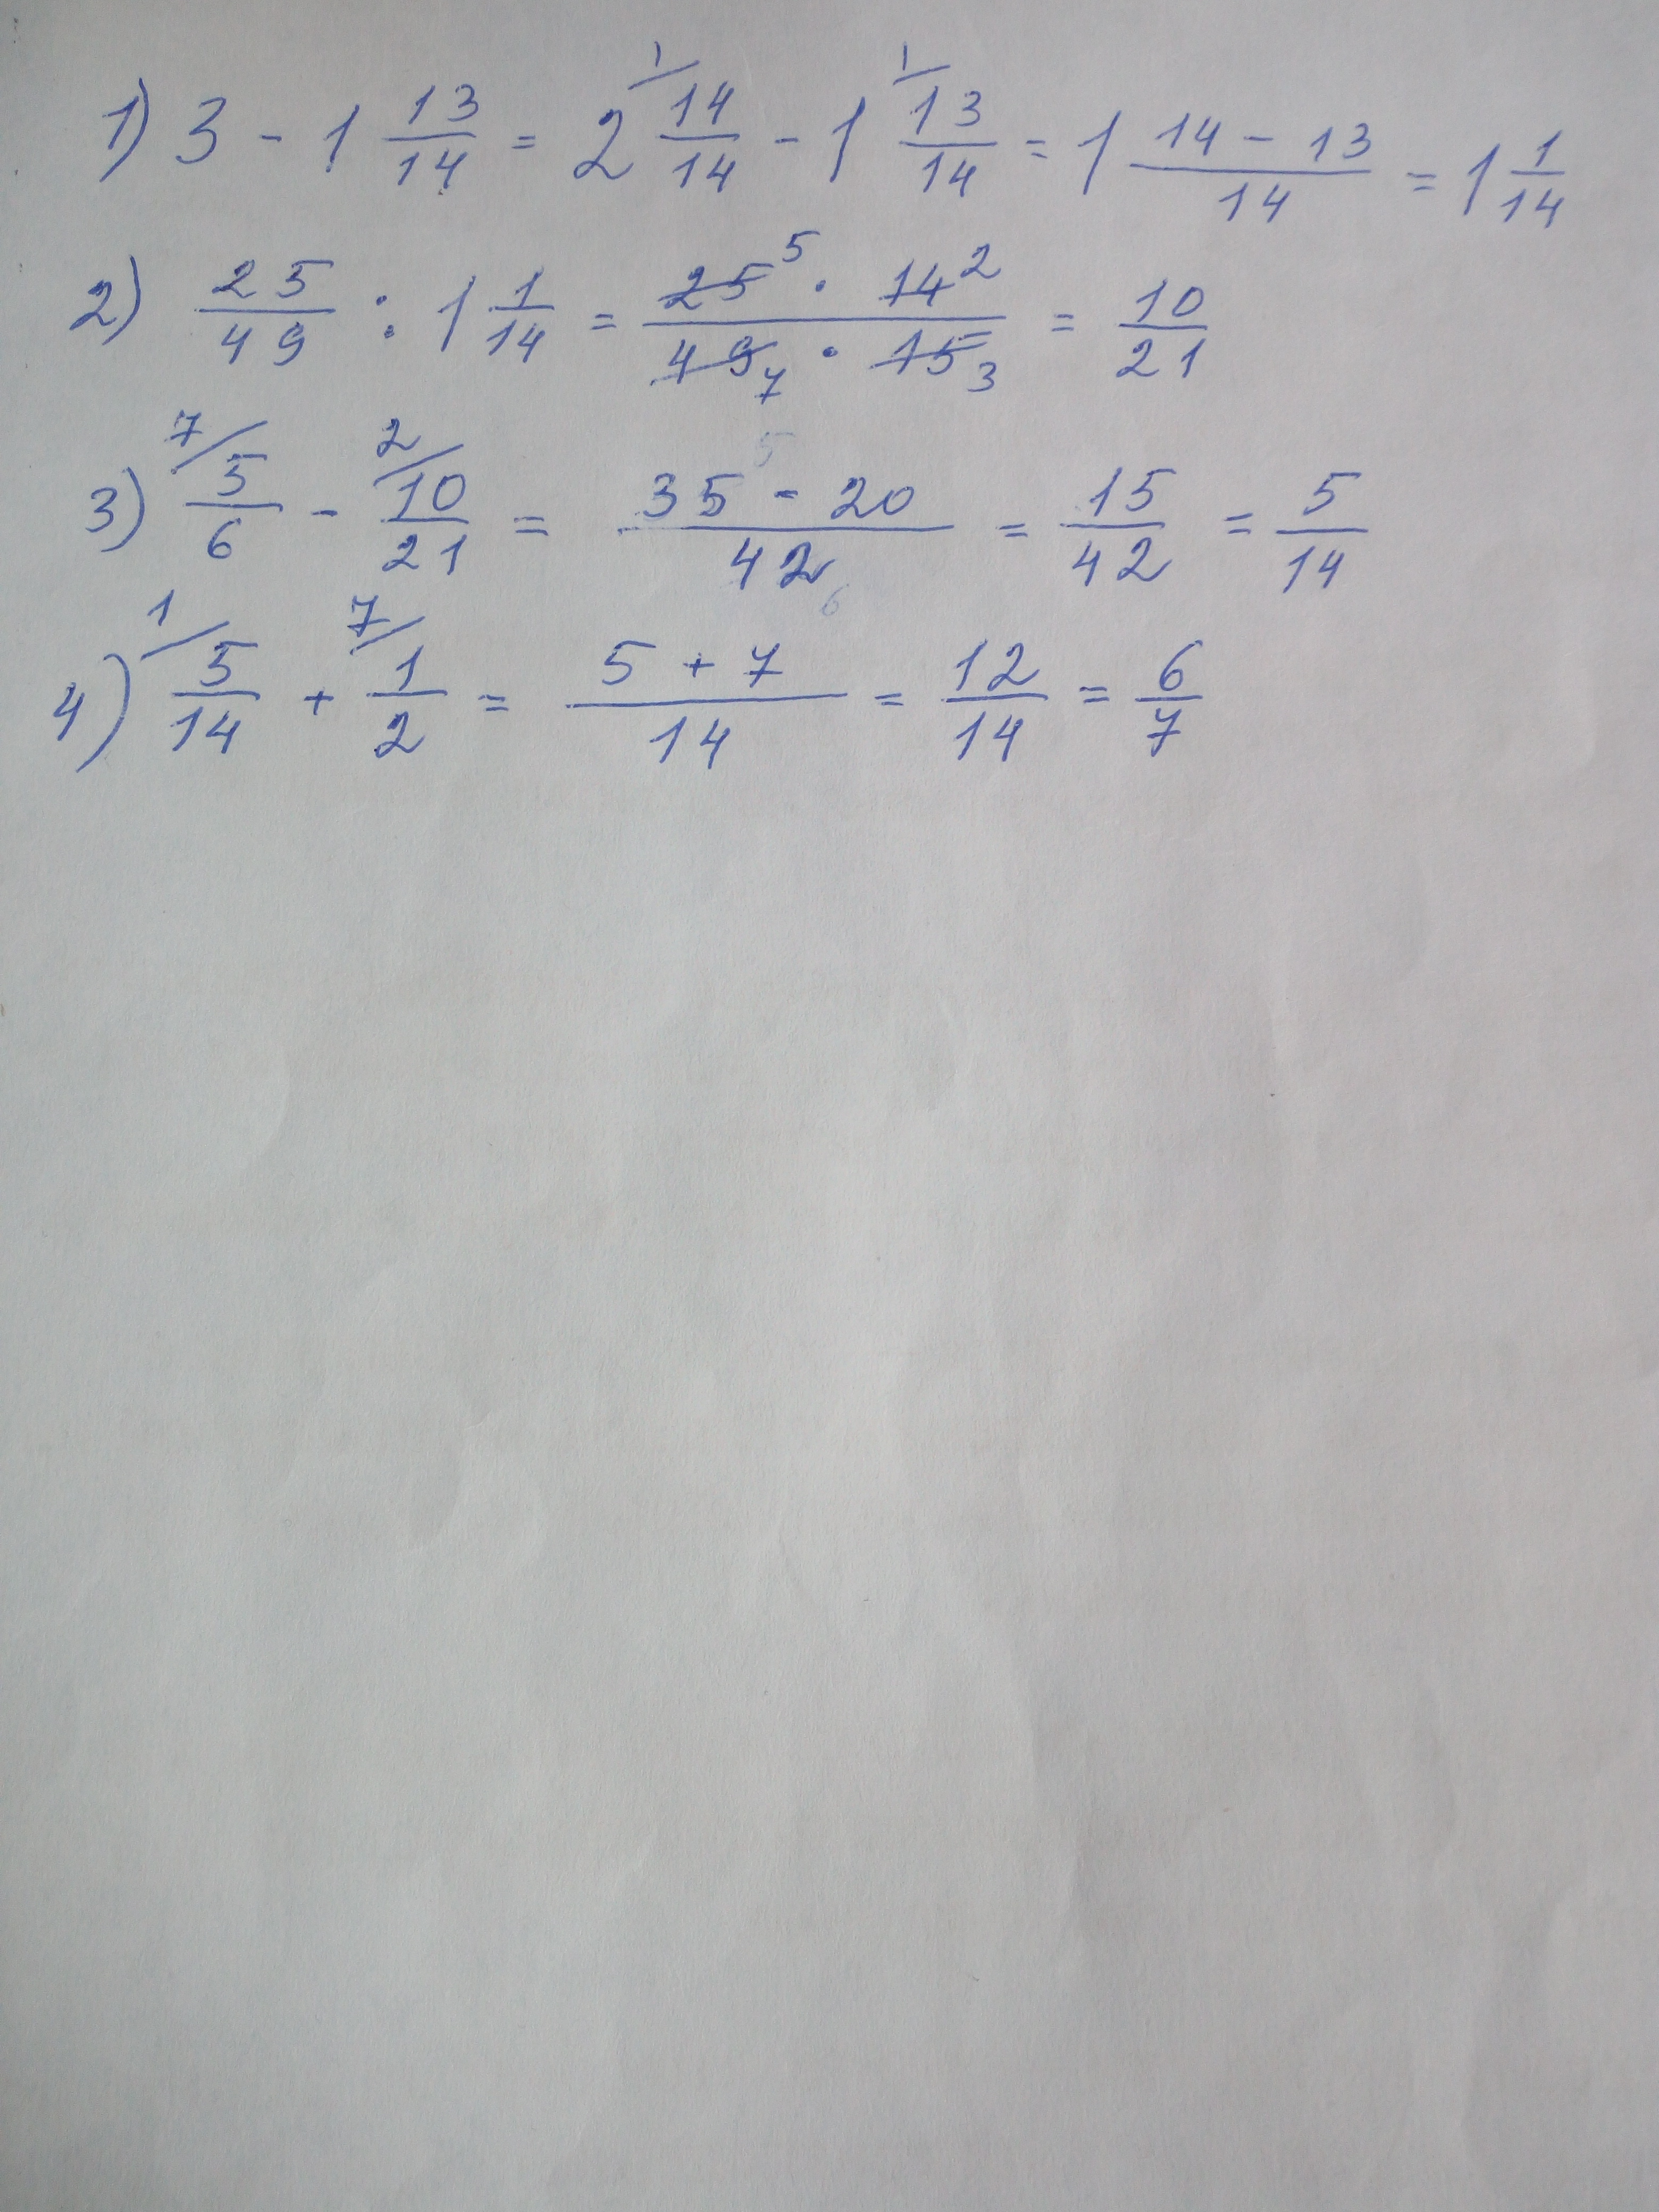 1) 3 - 1 13/14 = 2 1/ 14/14 - 1 1/ 13/14 = 1 (14 - 13)/14 = 1 1/14
2) 25/49 : 1 1/14 = (25 5 · 14 2)/(49 7 · 15 3) = 10/21
3) 7/ 5/6 - 2/ 10/21 = (35 - 20)/42 = 15/42 = 5/14
4) 1/ 5/14 + 7/ 1/2 = (5 + 7)/14 = 12/14 = 6/7